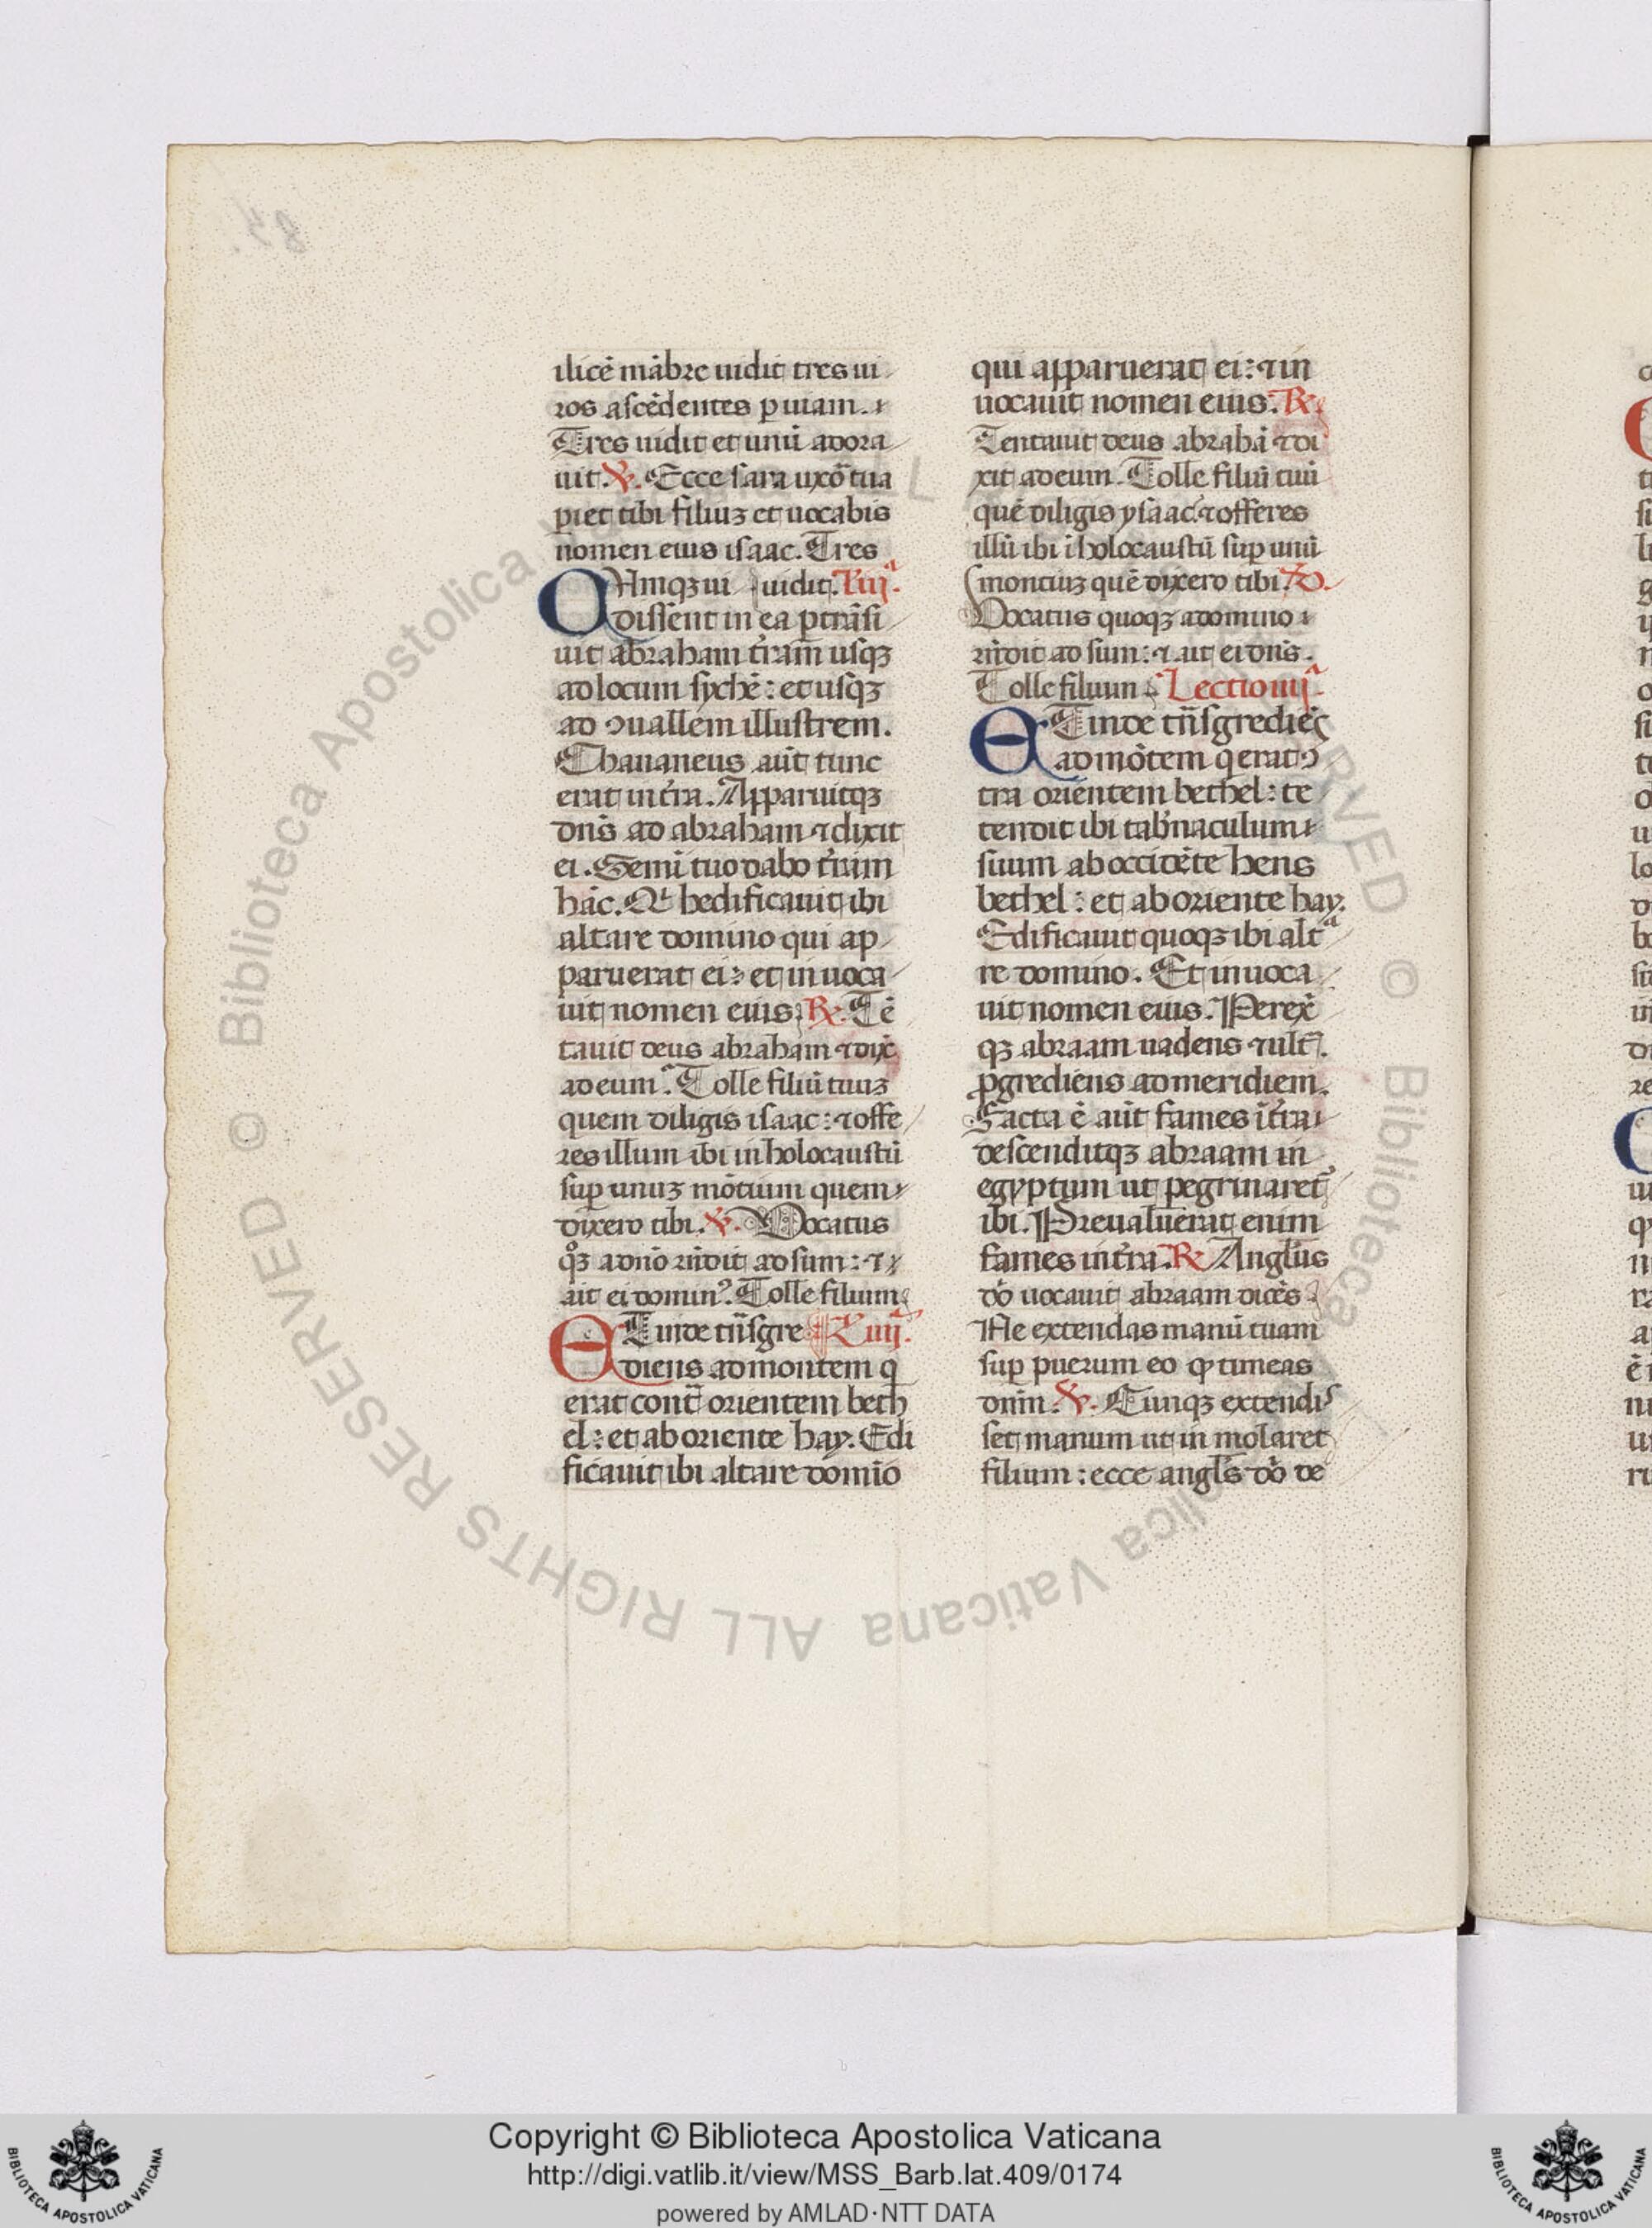 ilicē mābre uidit tres ui
ros ascēdentes p uiam.
Tres uidit et unū adora
uit. V. Ecce sara uxō tua
piet tibi filiuꝫ et uocabis
nomen eius isaac. Tres
QUmqꝫ ui uidit. L iijª.
dissent in ea ptrāsi
uit abraham t̄ram usqꝫ
ad locum sychē: et usqꝫ
ad ꝯuallem illustrem.
Chananeus aūt tunc
erat in t̄ra. Apparuitqꝫ
dns̄ ad abraham ⁊ dixit
ei. Semī tuo dabo t̄ram
hāc. Qi hedificauit ibi
altare domino qui ap
paruerat ei: et inuoca
uit nomen eius. R. Tē
tauit deus abraham ⁊ dix̄
ad eum. Tolle filiū tuuꝫ
quem diligis isaac: ⁊ offe
res illum ibi in holocaustū
sup unuꝫ mōtium quem
dixero tibi. V. Vocatus
qͦꝫ a dnō rn̄dit ad sum: ⁊
ait ei dominꝰ. Tolle filium
ET inde tn̄sgre L iiijª.
diens ad montem q
erat cont̄ orientem beth
el: et ab oriente hay. Edi
ficauit ibi altare domīo
qui apparuerat ei: ⁊ in
uocauit nomen eius. R.
Tentauit deus abrahā ⁊ di
xit ad eum. Tolle filiū tuū
quē diligis ysaac ⁊ offeres
illū ibi ī holocaustū sup unū
montiuꝫ quē dixero tibi. V.
Vocatus quoqꝫ a domino
rn̄dit ad sum: ⁊ ait ei dns̄.
Tolle filium Lectio iiijª.
ET inde tn̄sgrediēs
ad mōtem q erat ꝯ
tra orientem bethel: te
tendit ibi tab̄naculum
suum ab occidēte hens
bethel: et ab oriente hay.
Edificauit quoqꝫ ibi altª
re domino. Et inuoca
uit nomen eius. Perex̄
qꝫ abraam uadens ⁊ ult̄.
pgrediens ad meridiem.
Facta ē aūt fames ī t̄ra
descenditqꝫ abraam in
egyptum ut pegrinaret̄
ibi. Preualuerat enim
fames in t̄ra. R Angl̄us
dō uocauit abraam dicēs
Ne extendas manū tuam
sup puerum eo qꝫ timeas
dnm̄. V. Cunqꝫ extendis
set manum ut inmolaret
filium: ecce angl̄s dō de
Copyright © Biblioteca Apostolica Vaticana
http://digi.vatlib.it/view/MSS_Barb.lat.409/0174
powered by AMLAD·NTT DATA